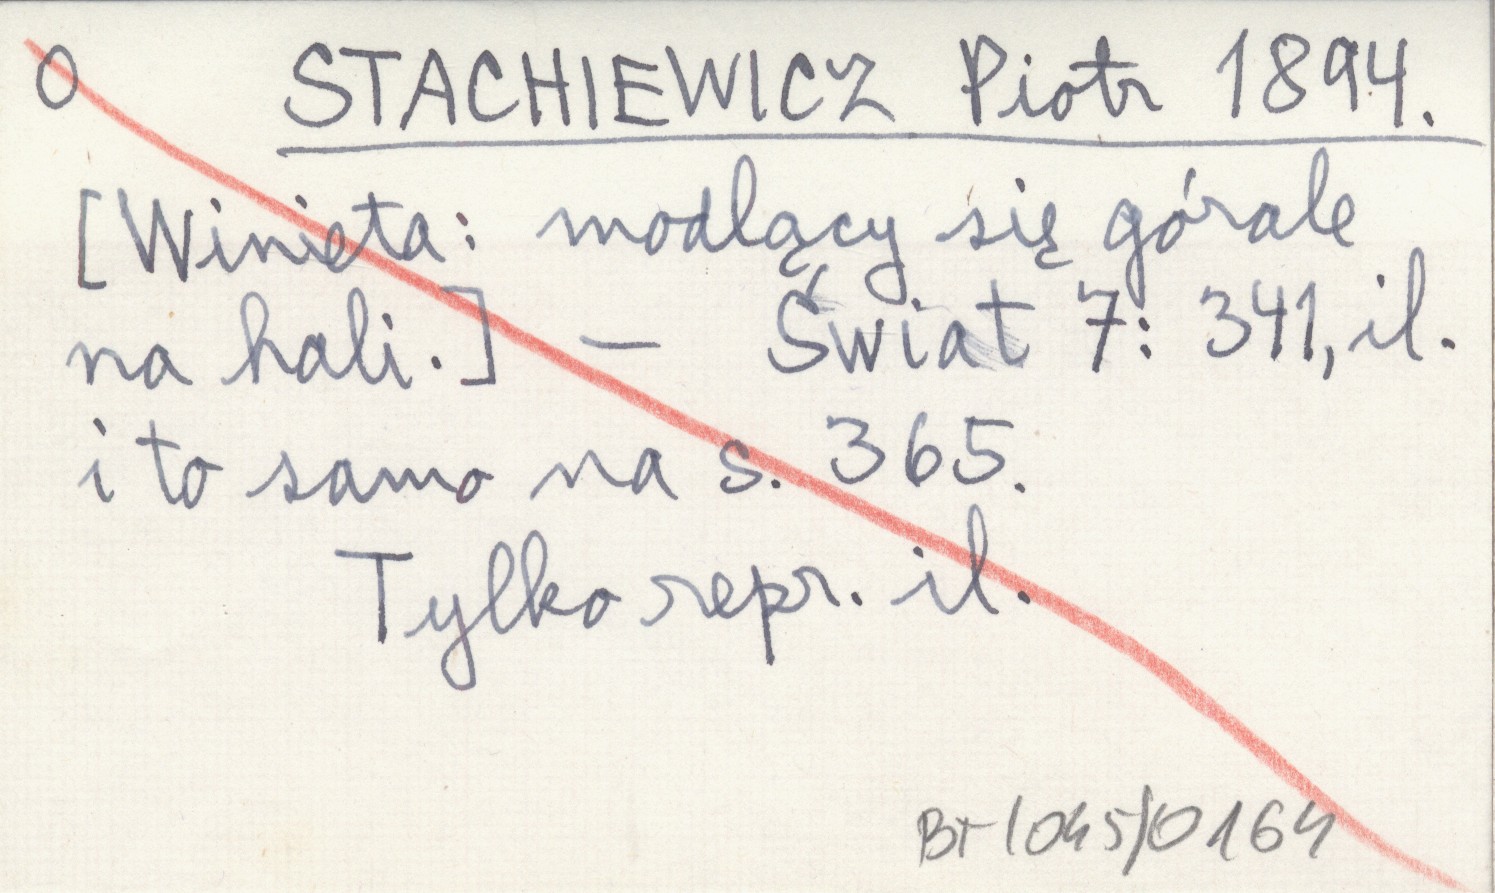 O STACHIEWICZ Piotr 1894.
[Winieta: modlący się górale
na hali.] — Świat 7: 341, il.
i to samo na s. 365.
Tylko repr. il.
BT/045/0164